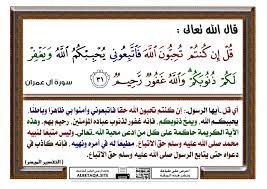 قال الله تعالى :
قُلْ إِن كُنتُمْ تُحِبُّونَ اللَّهَ فَاتَّبِعُونِي يُحْبِبْكُمُ اللَّهُ وَيَغْفِرْ
لَكُمْ ذُنُوبَكُمْ ۗ وَاللَّهُ غَفُورٌ رَّحِيمٌ ٣١
سورة آل عمران
أي قل -أيها الرسول-: إن كنتم تحبون الله حقا فاتبعوني وآمنوا بي ظاهرا وباطنا،
يحببكم الله، ويمح ذنوبكم، فإنه غفور لذنوب عباده المؤمنين، رحيم بهم. وهذه
الآية الكريمة حاكمة على كل من ادعى محبة الله -تعالى- وليس متبعا لنبيه
محمد صلى الله عليه وسلم حق الاتباع، مطيعا له في أمره ونهيه، فإنه كاذب في
دعواه حتى يتابع الرسول صلى الله عليه وسلم حق الاتباع.
(التفسير الميسر)